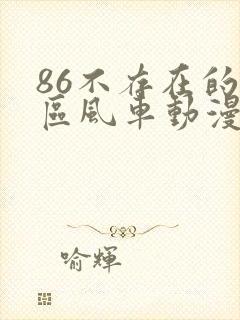 86不存在的
區風車動漫
喻輝